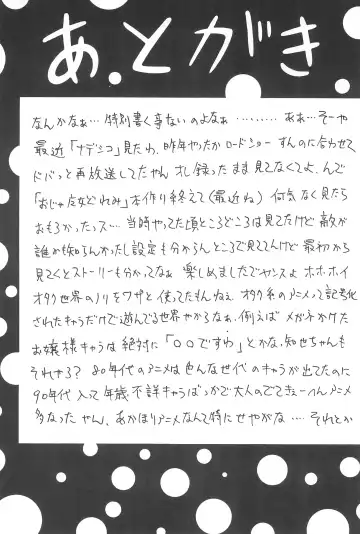 あとがき
なんかなぁ…特別書く事ないのよなぁ………ああ…そーや
最近「ナデシコ」見たわ、昨年やったかロードショーすんのに合わせて
ドバっと再放送してたやん オレ録ったまま見てなくてよ、んで
「おじゃ女どれみ」本作り終えて(最近ね)何気なく見たら
おもろかったっス…当時やってた頃ところどころは見てたけど敵が
誰かも知らんかったし設定も分からんところで見ててんけど最初から
見てくとストーリーも分かってなぁ 楽しめましたでヤンスよ ホホホイ
オタク世界のノリをワザと使ってたもんねぇ オタク系のアニメって記号化
されたキャラだけで遊んでる世界やからなぁ、例えばメガネかけた
お嬢様キャラは絶対に「○○ですわ」とかな、知世ちゃんも
それやろ?80年代のアニメは色んな世代のキャラが出てたのに
90年代入って年齢不詳キャラばっかで大人のでてきぃーへんアニメ
多なったやん、あかほりアニメなんて特にせやがな….それとか